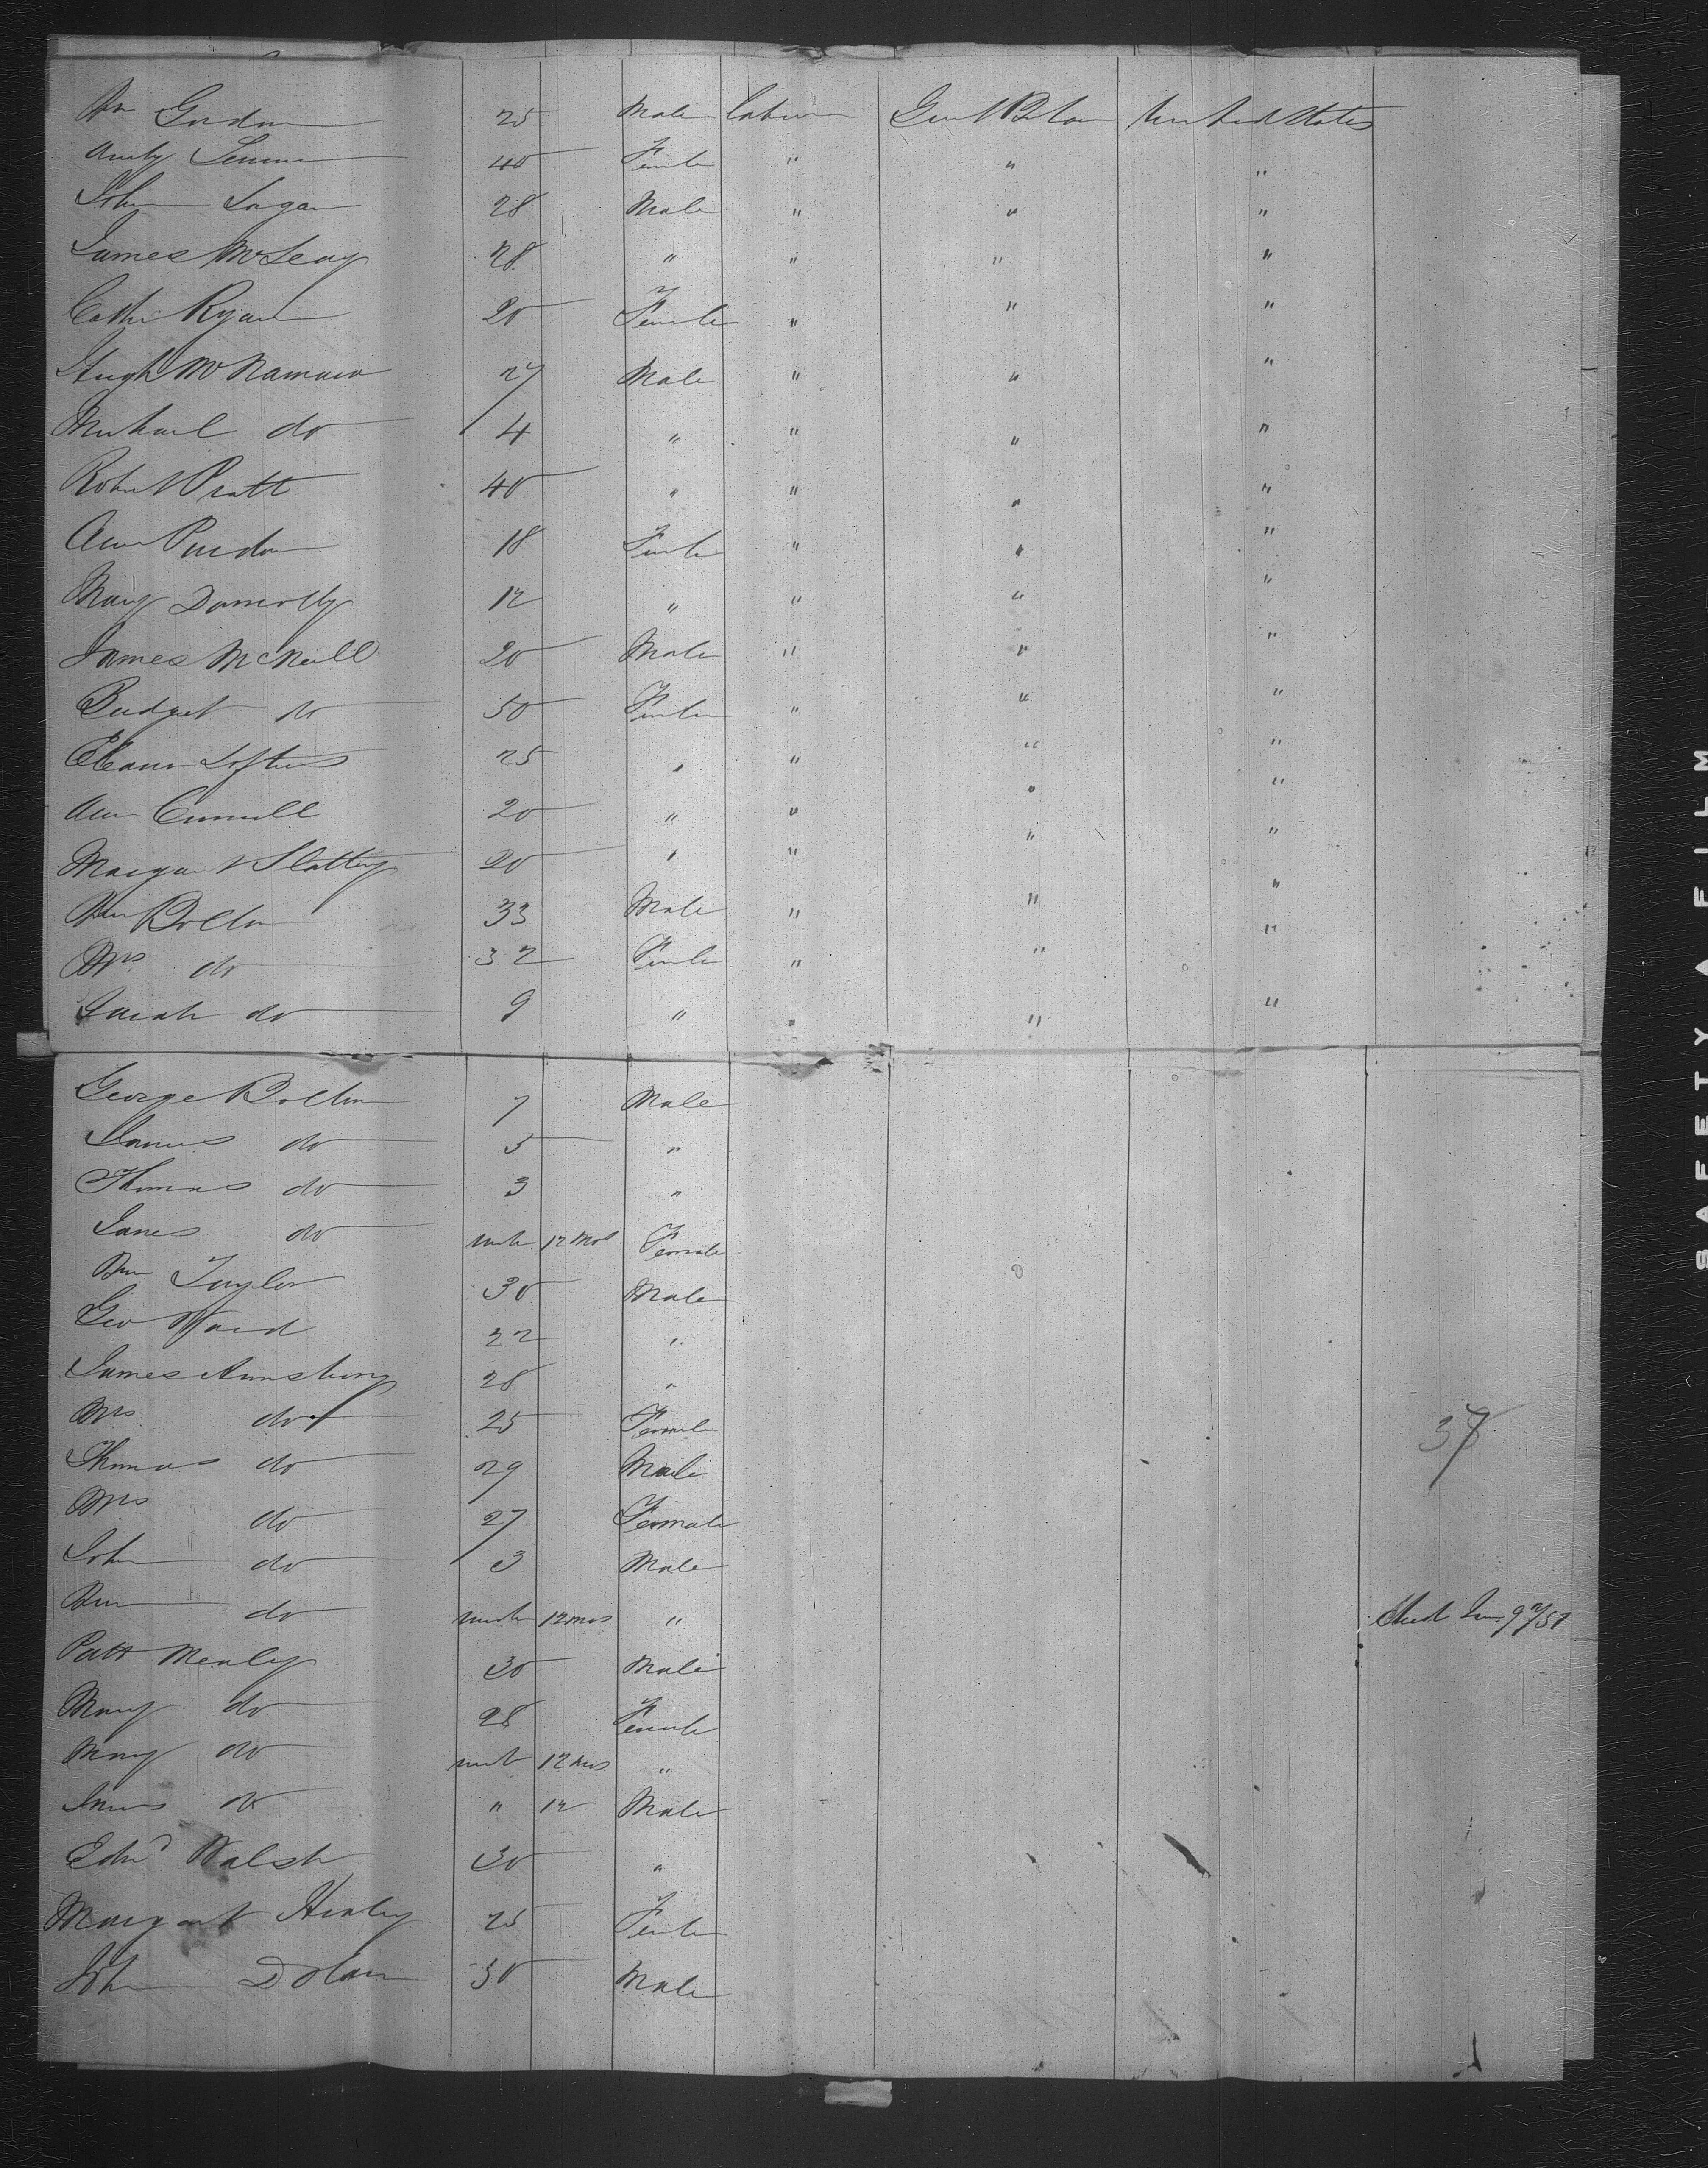 Wm Gordon 25 Male labour Great Britain United States
40 Female " " "
John Logan 28 Male " " "
James McLeay 28 " " " "
Cathe Ryan 20 Female " " "
Hugh McNamara 27 Male " " "
Michael do 4 " " " "
Robert Pratt 40 " " " "
Ann Purdon 18 Female " " "
Mary Donnolly 12 " " " "
James McNeill 20 Male " " "
Bridget do 50 Female " " "
Eleanor Loftus 25 " " " "
Ann 20 " " " "
Margaret Slattery 20 " " " "
Wm Bolton 33 Male " " "
Mrs do 32 Female " " "
Sarah do 9 " " " "
George Bolton 7 Male
James do 5 "
Thomas do 3 "
do under 12 Mos Female
Taylor 30 Male
Geo Ward 22 "
James 28 "
Mrs do 25 Female
Thomas do 29 Male
Mrs do 27 Female
John do 3 Male
do under 12 mos " 9 2/51
Patt Mealey 30 Male
Mary do 28 Female
Mary do under 12 mos "
James do " 12 Male
Edwd Walsh 30 "
Margaret Healey 25 Female
John Dolan 30 Male
SAFETY A FILM